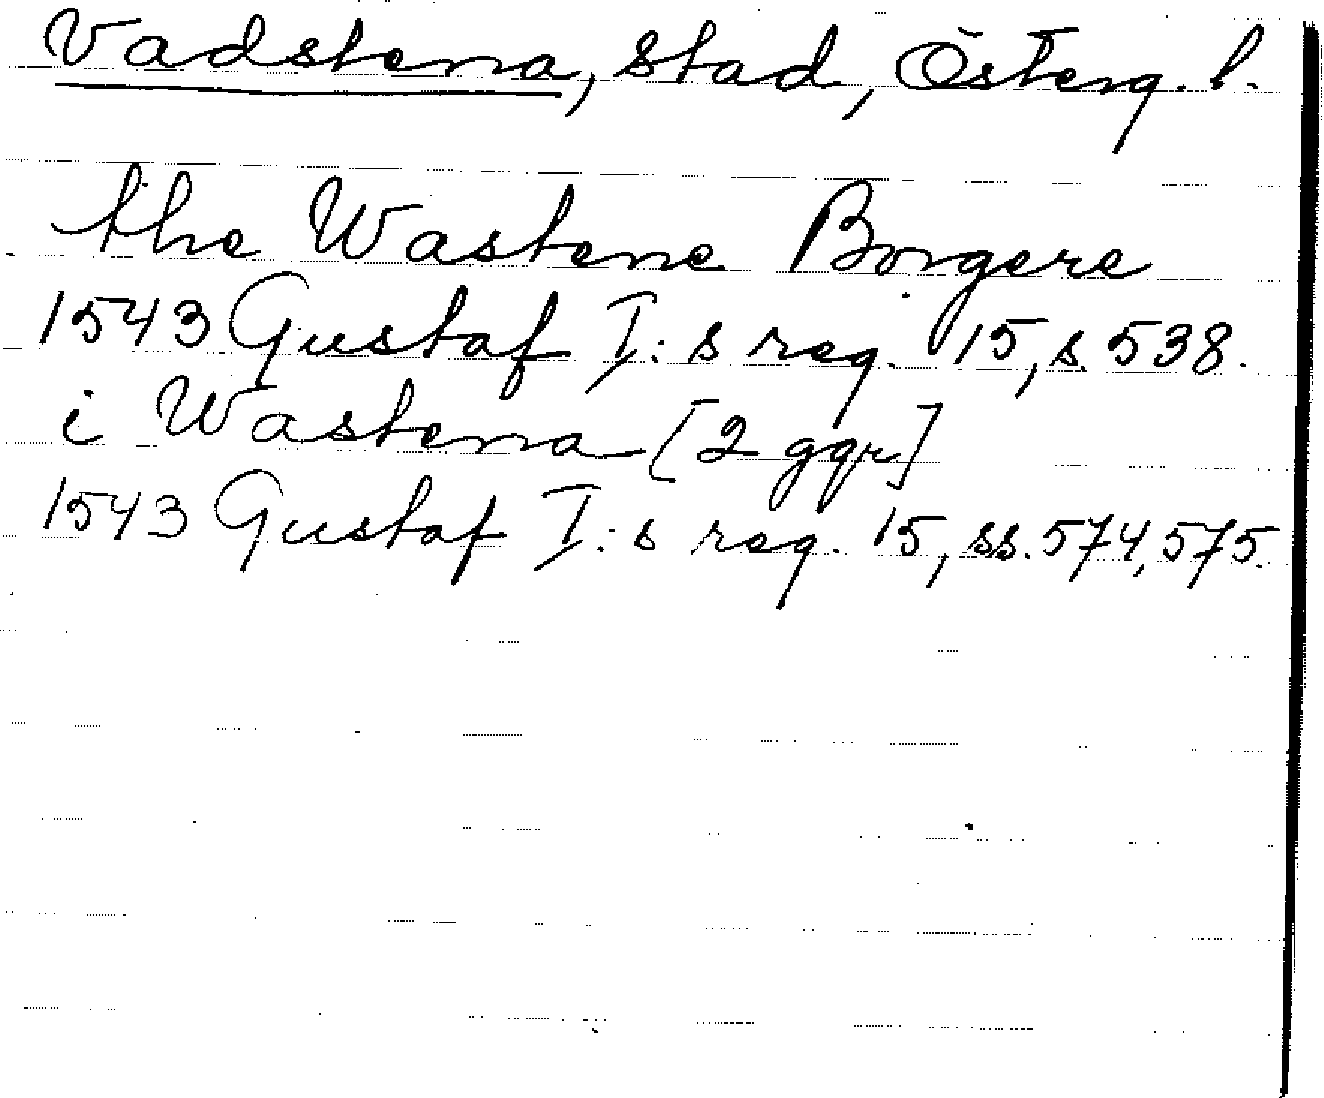 Vadstena, stad, Österg. l.
the Wastene Borgere
1543 Gustaf I: s reg. 15, s. 538.
i Wastena [2 ggr]
1543 Gustaf I: s reg. 15, ss. 574, 575.